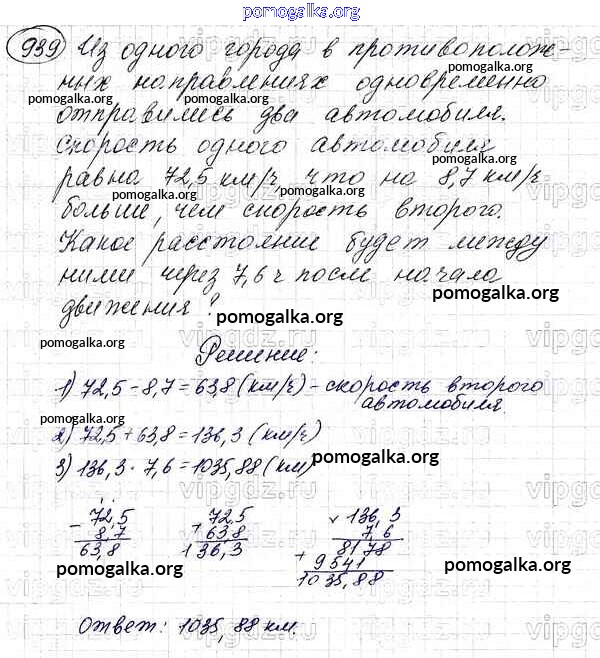 pomogalka.org
939 Из одного города в противополож-
ных направлениях одновременно
pomogalka.org pomogalka.org
отправились два автомобиля.
Скорость одного автомобиля
pomogalka.org pomogalka.org
равна 72,5 км/ч, что на 8,7 км/ч
больше, чем скорость второго.
pomogalka.org
Какое расстояние будет между
ними через 7,6 ч после начала
pomogalka.org
движения?
pomogalka.org
pomogalka.org
Решение:
1) 72,5 - 8,7 = 63,8 (км/ч) - скорость второго
автомобиля.
pomogalka.org
2) 72,5 + 63,8 = 136,3 (км/ч)
3) 136,3 · 7,6 = 1035,88 (км)
pomogalka.org
- 72,5 72,5 × 136,3
8,7 + 63,8 7,6
63,8 136,3 8178
+ 9541
1035,88
pomogalka.org pomogalka.org pomogalka.org
Ответ: 1035,88 км.
vipgdz.ru